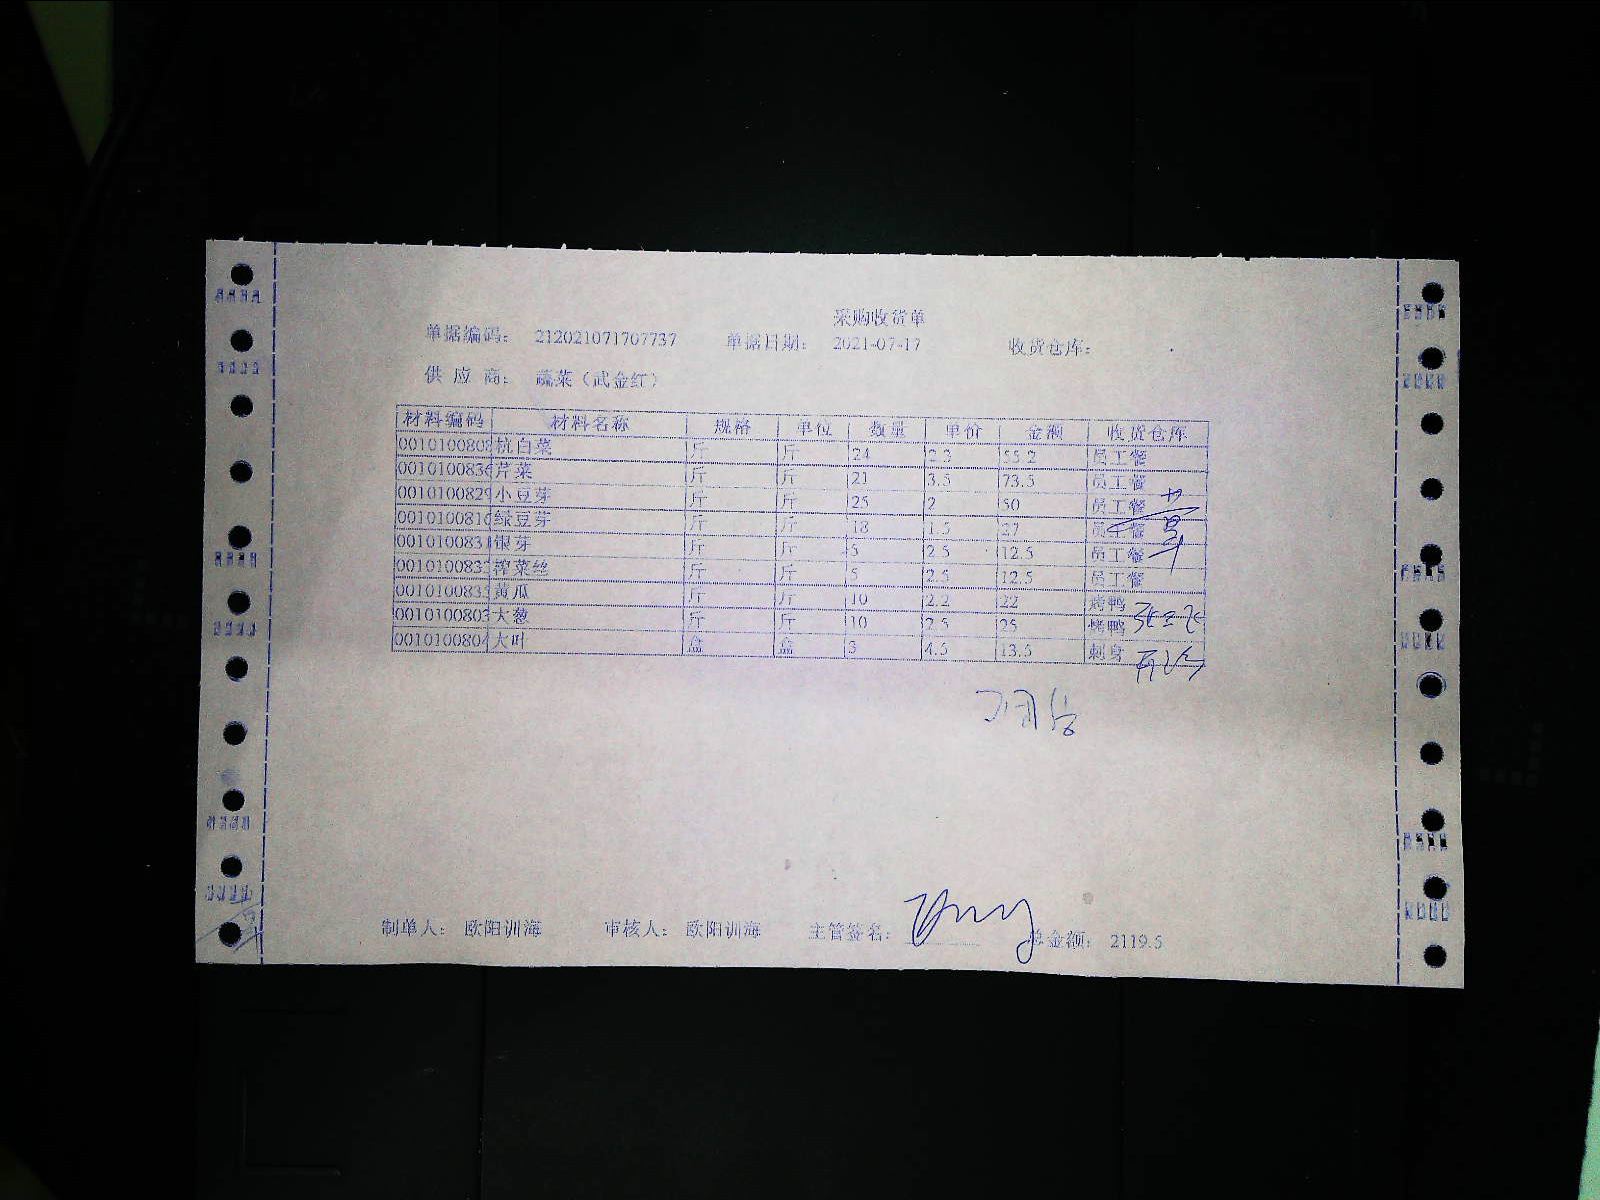 采购收货单
单据编码： 212021071707737 单据日期： 2021-07-17 收货仓库：
供 应 商： 蔬菜（武金红）
材料编码 材料名称 规格 单位 数量 单价 金额 收货仓库
0010100808 杭白菜 斤 斤 24 2.3 55.2 员工餐
001010083 芹菜 斤 斤 21 3.5 73.5 员工餐
0010100829 小豆芽 斤 斤 25 2 50 员工餐
0010100816 绿豆芽 斤 斤 18 1.5 27 员工餐
001010083 银芽 斤 斤 5 2.5 12.5 员工餐
001010083 榨菜丝 斤 斤 5 2.5 12.5 员工餐
001010083 黄瓜 斤 斤 10 2.2 22 烤鸭
0010100803 大葱 斤 斤 10 2.5 25 烤鸭
0010100804 大叶 盒 盒 3 4.5 13.5 刺身
制单人： 欧阳训海 审核人： 欧阳训海 主管签名： 总金额： 2119.5